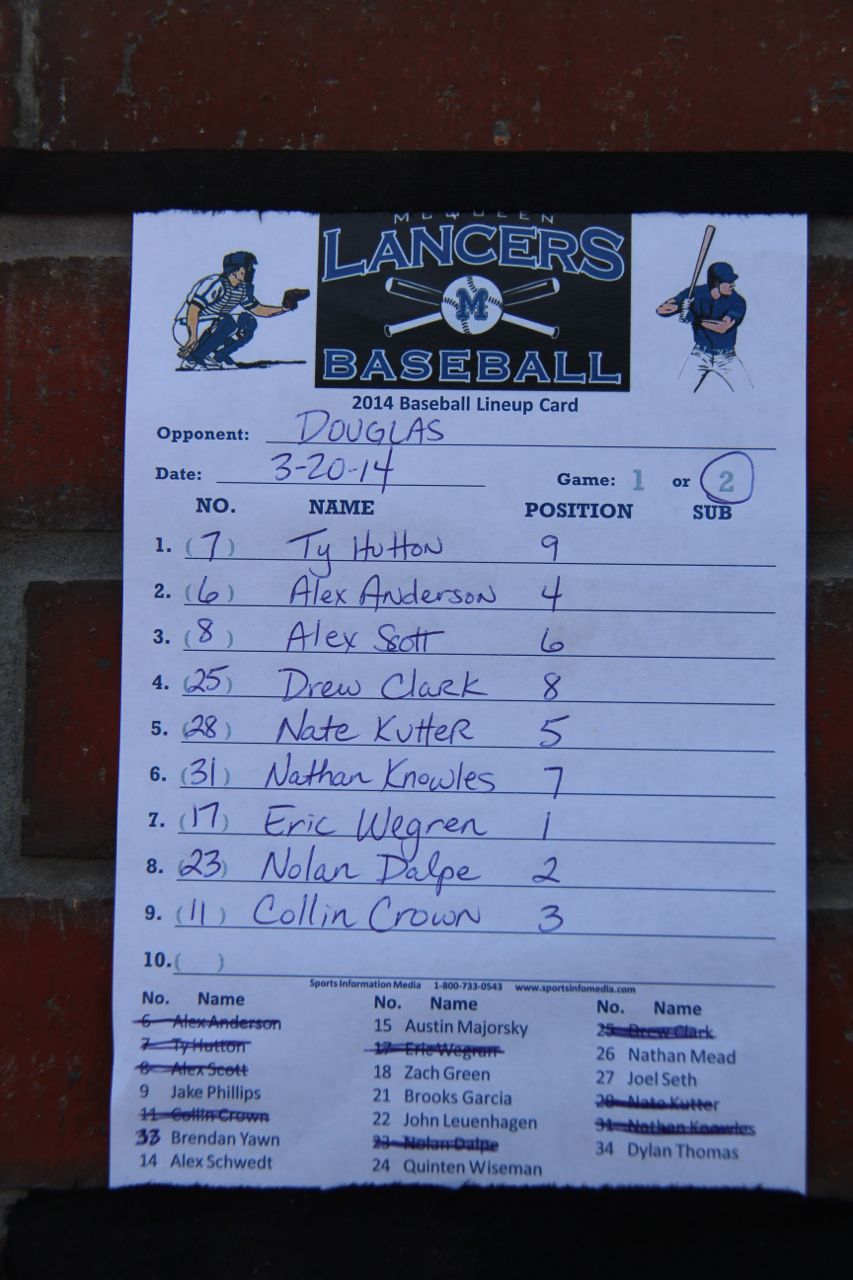 McQUEEN
LANCERS
M
BASEBALL
2014 Baseball Lineup Card
Opponent: DOUGLAS
Date: 3-20-14 Game: 1 or 2
NO. NAME POSITION SUB
1. (7) Ty Hutton 9
2. (6) Alex Anderson 4
3. (8) Alex Scott 6
4. (25) Drew Clark 8
5. (28) Nate Kutter 5
6. (31) Nathan Knowles 7
7. (17) Eric Wegren 1
8. (23) Nolan Dalpe 2
9. (11) Collin Crown 3
10. ( )
Sports Information Media 1-800-733-0543 www.sportsinfomedia.com
No. Name
6 Alex Anderson
7 Ty Hutton
8 Alex Scott
9 Jake Phillips
11 Collin Crown
33 Brendan Yawn
14 Alex Schwedt
No. Name
15 Austin Majorsky
17 Eric Wegran
18 Zach Green
21 Brooks Garcia
22 John Leuenhagen
23 Nolan Dalpe
24 Quinten Wiseman
No. Name
25 Drew Clark
26 Nathan Mead
27 Joel Seth
28 Nate Kutter
31 Nathan Knowles
34 Dylan Thomas